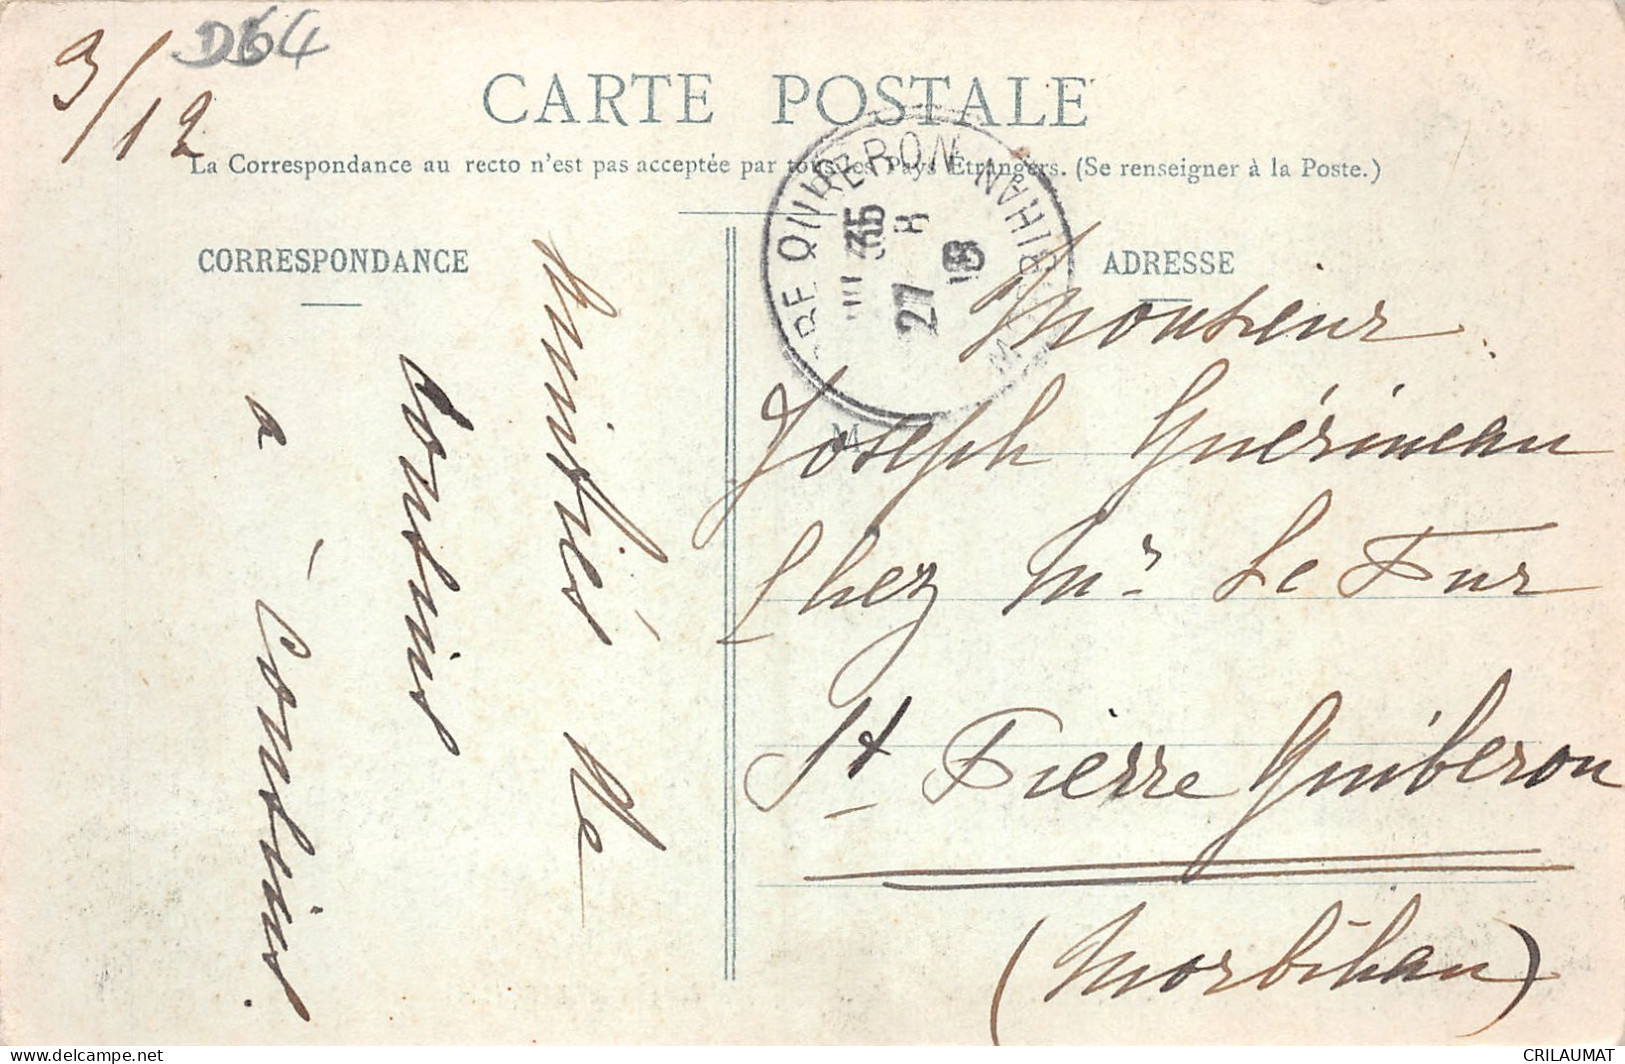 3/12
D64
CARTE POSTALE
La Correspondance au recto n'est pas acceptée par tous les Pays Etrangers. (Se renseigner à la Poste.)
CORRESPONDANCE
Amitiés de
Cousins
à Cousins.
ADRESSE
QUIBERON MORBIHAN
27
Monsieur
Joseph Guérineau
Chez Mr Le Fur
St Pierre Quiberon
(Morbihan)
www.delcampe.net
CRILAUMAT